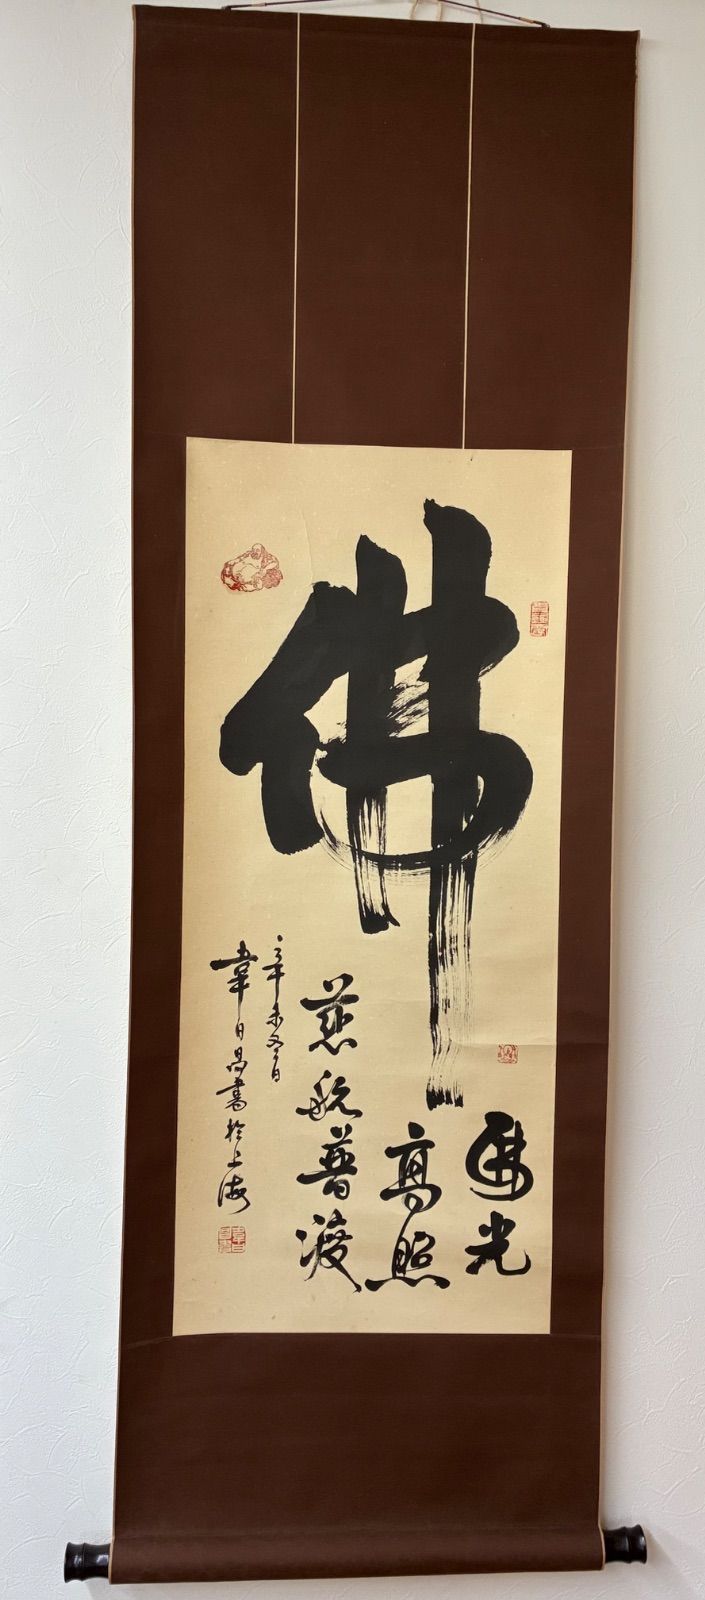 佛
佛光
高照
慈航普渡
辛未冬日
韋日昌書於上海